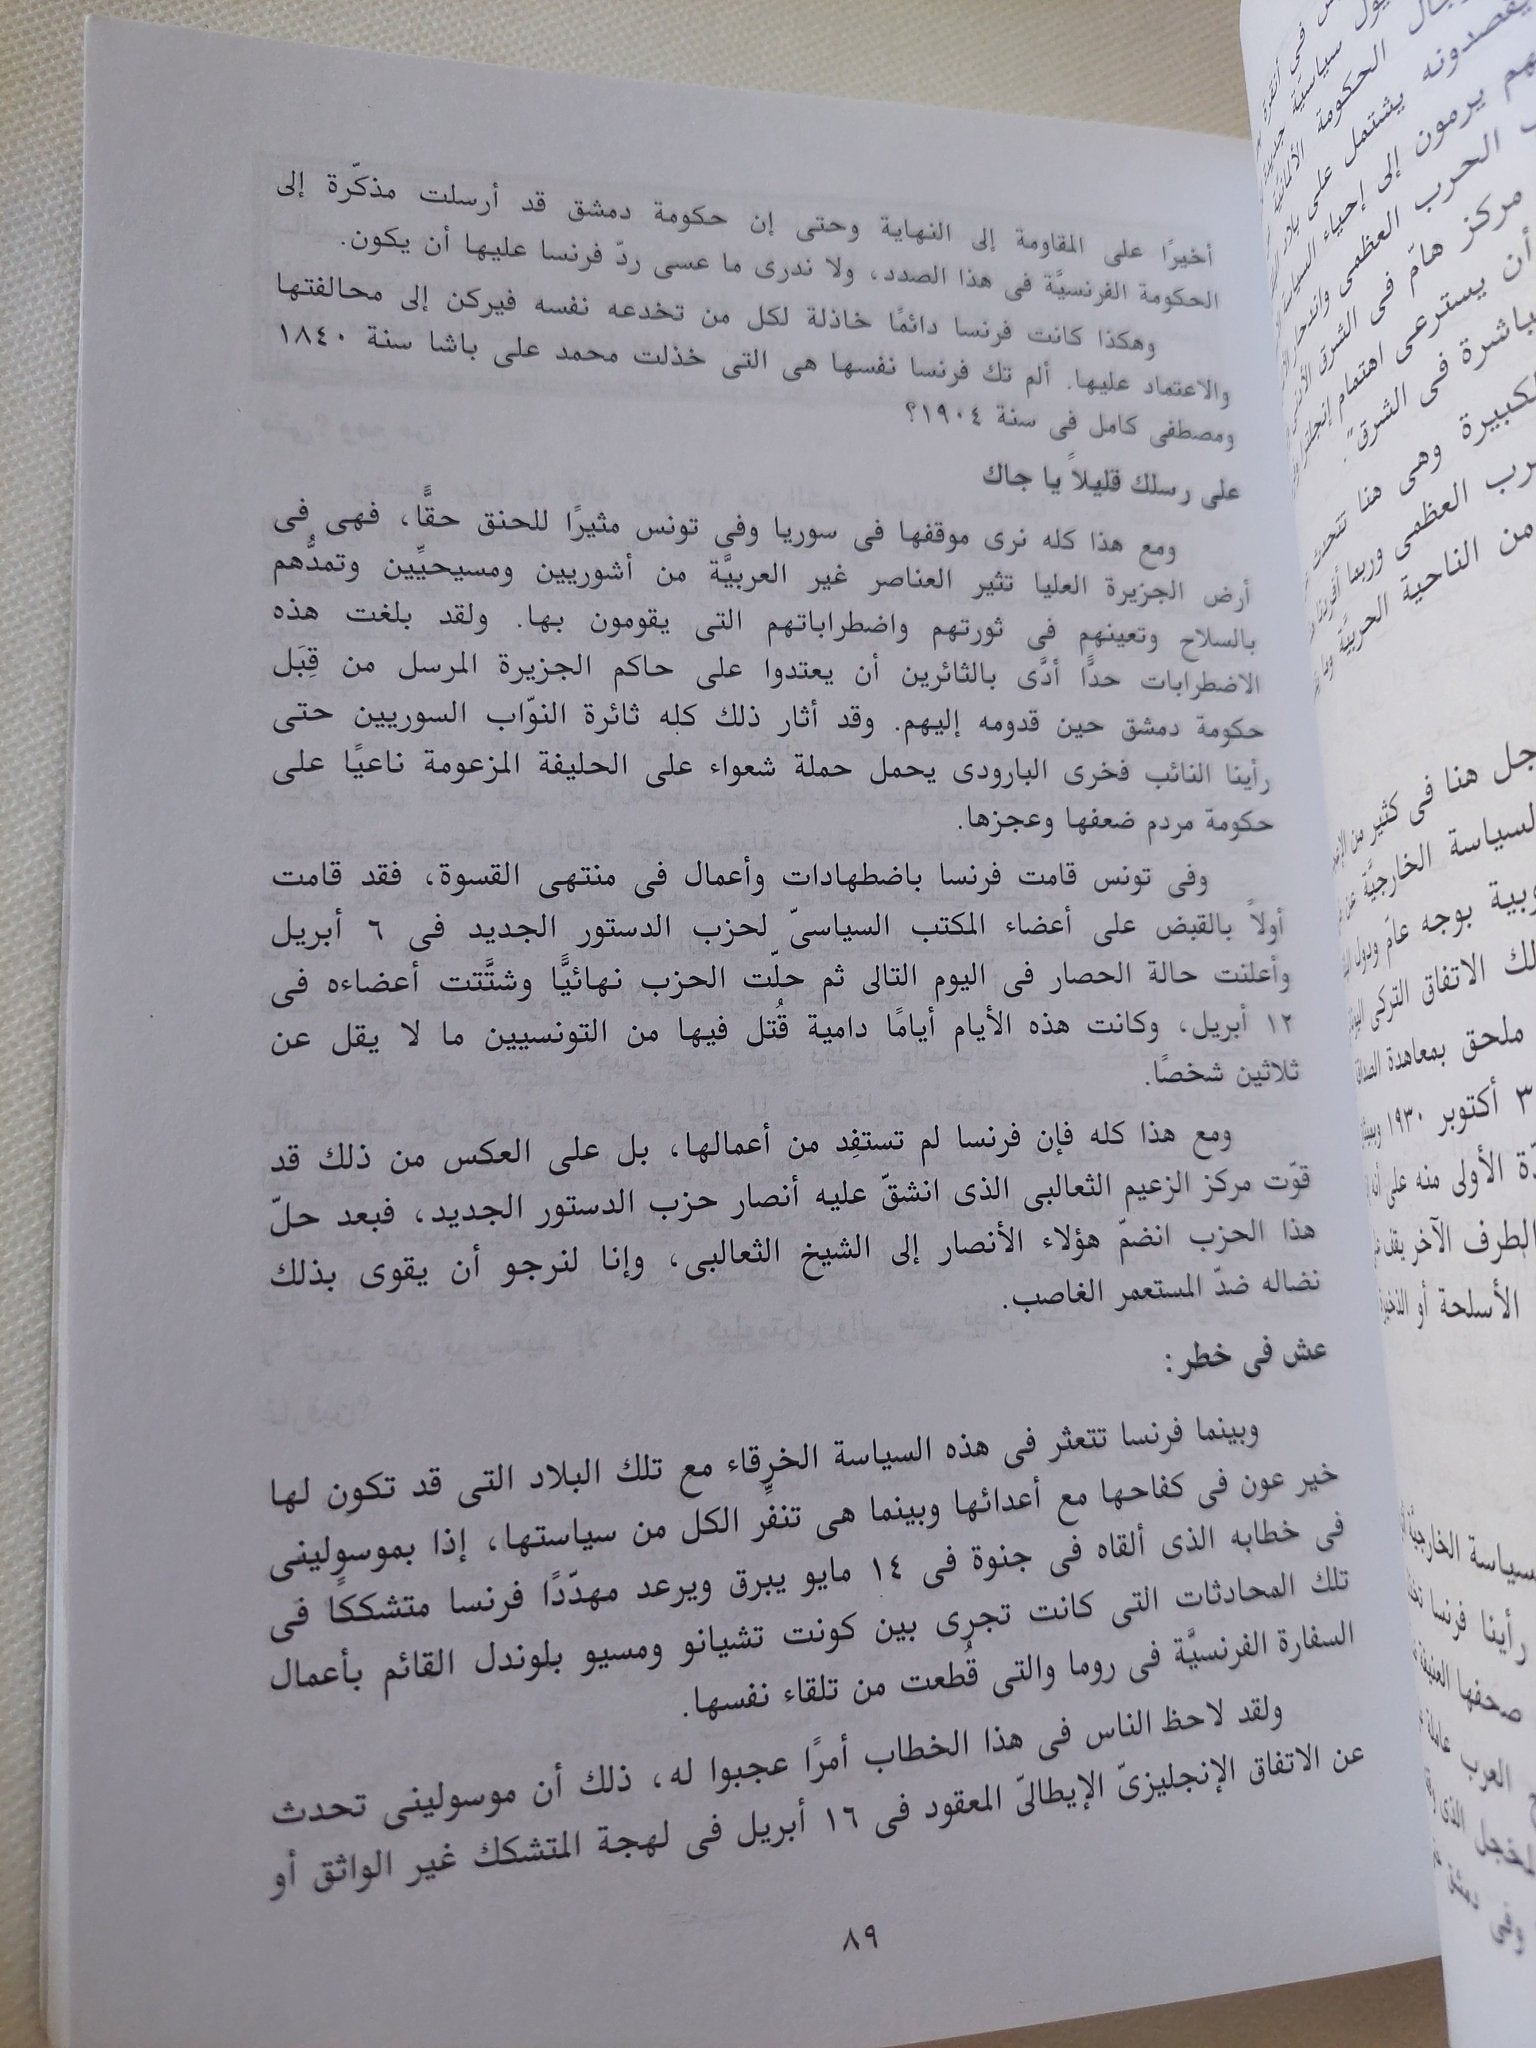 أخيرًا على المقاومة إلى النهاية وحتى إن حكومة دمشق قد أرسلت مذكّرة إلى
الحكومة الفرنسيَّة فى هذا الصدد، ولا ندرى ما عسى ردّ فرنسا عليها أن يكون.
وهكذا كانت فرنسا دائمًا خاذلة لكل من تخدعه نفسه فيركن إلى محالفتها
والاعتماد عليها. ألم تك فرنسا نفسها هى التى خذلت محمد على باشا سنة ١٨٤٠
ومصطفى كامل فى سنة ١٩٠٤؟
على رسلك قليلاً يا جاك
ومع هذا كله نرى موقفها فى سوريا وفى تونس مثيرًا للحنق حقًّا، فهى فى
أرض الجزيرة العليا تثير العناصر غير العربيَّة من أشوريين ومسيحيِّين وتمدُّهم
بالسلاح وتعينهم فى ثورتهم واضطراباتهم التى يقومون بها. ولقد بلغت هذه
الاضطرابات حدًّا أدَّى بالثائرين أن يعتدوا على حاكم الجزيرة المرسل من قِبَل
حكومة دمشق حين قدومه إليهم. وقد أثار ذلك كله ثائرة النوّاب السوريين حتى
رأينا النائب فخرى البارودى يحمل حملة شعواء على الحليفة المزعومة ناعيًا على
حكومة مردم ضعفها وعجزها.
وفى تونس قامت فرنسا باضطهادات وأعمال فى منتهى القسوة، فقد قامت
أولاً بالقبض على أعضاء المكتب السياسىّ لحزب الدستور الجديد فى ٦ أبريل
وأعلنت حالة الحصار فى اليوم التالى ثم حلّت الحزب نهائيًّا وشتَّتت أعضاءه فى
١٢ أبريل، وكانت هذه الأيام أيامًا دامية قُتل فيها من التونسيين ما لا يقل عن
ثلاثين شخصًا.
ومع هذا كله فإن فرنسا لم تستفِد من أعمالها، بل على العكس من ذلك قد
قوّت مركز الزعيم الثعالبى الذى انشقّ عليه أنصار حزب الدستور الجديد، فبعد حلّ
هذا الحزب انضمّ هؤلاء الأنصار إلى الشيخ الثعالبى، وإنا لنرجو أن يقوى بذلك
نضاله ضدّ المستعمر الغاصب.
عش فى خطر:
وبينما فرنسا تتعثر فى هذه السياسة الخرقاء مع تلك البلاد التى قد تكون لها
خير عون فى كفاحها مع أعدائها وبينما هى تنفِّر الكل من سياستها، إذا بموسولينى
فى خطابه الذى ألقاه فى جنوة فى ١٤ مايو يبرق ويرعد مهدّدًا فرنسا متشككًا فى
تلك المحادثات التى كانت تجرى بين كونت تشيانو ومسيو بلوندل القائم بأعمال
السفارة الفرنسيَّة فى روما والتى قُطعت من تلقاء نفسها.
ولقد لاحظ الناس فى هذا الخطاب أمرًا عجبوا له، ذلك أن موسولينى تحدث
عن الاتفاق الإنجليزىّ الإيطالىّ المعقود فى ١٦ أبريل فى لهجة المتشكك غير الواثق أو
٨٩
يقصدونه يشتمل على بلاد
هم يرمون إلى إحياء السياسة
الحرب العظمى
مركز هامّ فى الشرق
أن يسترعى اهتمام إنجلترا
فى الشرق
وهى هنا تتحدث
العظمى وربما
من الناحية الحربيَّة
هنا فى كثير من
الخارجيَّة عن
بوجه عامّ ودول
الاتفاق التركى
ملحق بمعاهدة
أكتوبر ١٩٣٠
الأولى منه على
الطرف الآخر
الأسلحة أو الذخيرة
الخارجيَّة
رأينا فرنسا
صحفها العنيفة
العرب عاملة
الذى
وفى دمشق